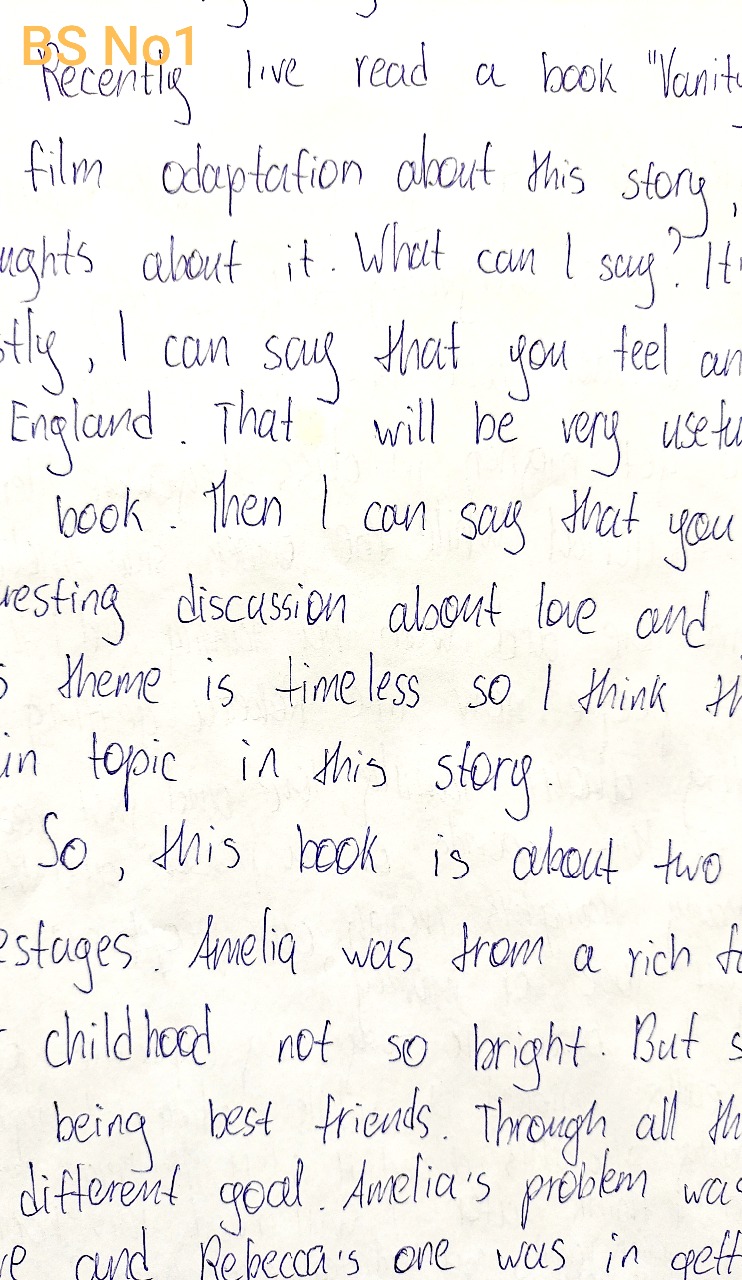 BS No1
Recently I've read a book "Vanity
film adaptation about this story,
ughts about it. What can I say? It
stly, I can say that you feel an
England. That will be very usefu
book. Then I can say that you
resting discussion about love and
s theme is timeless so I think th
in topic in this story.
So, this book is about two
estages. Amelia was from a rich fa
childhood not so bright. But s
being best friends. Through all th
different goal. Amelia's problem was
re and Rebecca's one was in gett